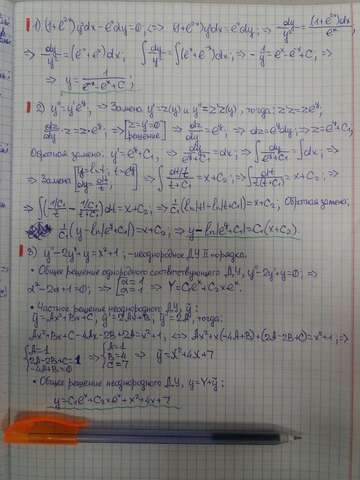 1) (1+e^{2x})y²dx - e^x dy = 0, ⇒ (1+e^{2x})y²dx = e^x dy; ⇒ dy/y² = (1+e^{2x})dx/e^x,
⇒ dy/y² = (e^{-x}+e^x)dx, ∫dy/y² = ∫(e^x+e^{-x})dx; ⇒ -1/y = e^x - e^{-x} + C₁, ⇒
⇒ y = 1/(e^{-x} - e^x + C);
2) y'' = y'e^y, ⇒ Замена y' = z(y) и y'' = z'z(y), тогда: z'z = ze^y,
dz/dy · z = z·e^y; ⇒ [z = y' = 0 решение] ⇒ dz/dy = e^y, ⇒ dz = e^y dy; ⇒ z = e^y + C₁,
Обратная замена: y' = e^y + C₁, ⇒ dy/(e^y+C₁) = dx; ⇒ ∫dy/(e^y+C₁) = ∫dx; ⇒
⇒ Замена [y = ln t, t = e^y dy = dt/t] ⇒ ∫(dt/t)/(t+C₁) = x + C₂; ⇒ ∫dt/(t(t+C₁)) = x + C₂; ⇒
⇒ ∫((1/C₁)/t - (1/C₁)/(t+C₁))dt = x + C₂; ⇒ 1/C₁(ln|t| - ln|t+C₁|) = x + C₂, Обратная замена:
1/C₁(y - ln|e^y+C₁|) = x + C₂, ⇒ y - ln|e^y+C₁| = C₁(x+C₂).
3) y'' - 2y' + y = x² + 1, - неоднородное ДУ II порядка.
• Общее решение однородного соответствующего ДУ, y'' - 2y' + y = 0; ⇒
λ² - 2λ + 1 = 0; ⇒ [λ = 1 λ = 1 ⇒ Y = C₁e^x + C₂xe^x.
• Частное решение неоднородного ДУ, ỹ:
ỹ = Ax² + Bx + C, ỹ' = 2Ax + B, ỹ'' = 2A, тогда:
Ax² + Bx + C - 4Ax - 2B + 2A = x² + 1, ⇔ Ax² + x(-4A+B) + (2A-2B+C) = x² + 1; ⇒
{A = 1 2A - 2B + C = 1 -4A + B = 0 ⇒ {A = 1 B = 4 C = 7 ⇒ ỹ = x² + 4x + 7
• Общее решение неоднородного ДУ, y = Y + ỹ:
y = C₁e^x + C₂xe^x + x² + 4x + 7